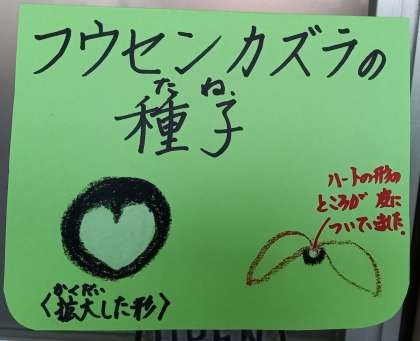 フウセンカズラの
たね
種子
ハートの形の
ところが皮に
ついていました。
かくだい
〈拡大した形〉
OPEN